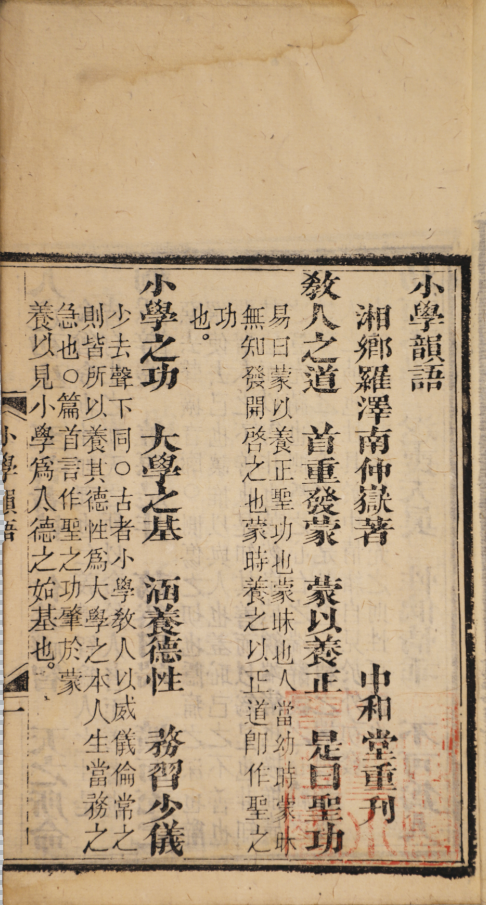 小學韻語
湘鄉羅澤南仲嶽著　中和堂重刊
教人之道　首重發蒙　蒙以養正　是曰聖功
易曰蒙以養正聖功也蒙昧也人當幼時蒙昧
無知發開啓之也蒙時養之以正道卽作聖之
功
也。
小學之功　大學之基　涵養德性　務習少儀
少去聲下同○古者小學敎人以威儀倫常之
則皆所以養其德性爲大學之本人生當務之
急也○篇首言作聖之功肇於蒙
養以見小學爲入德之始基也。
小學韻語　一